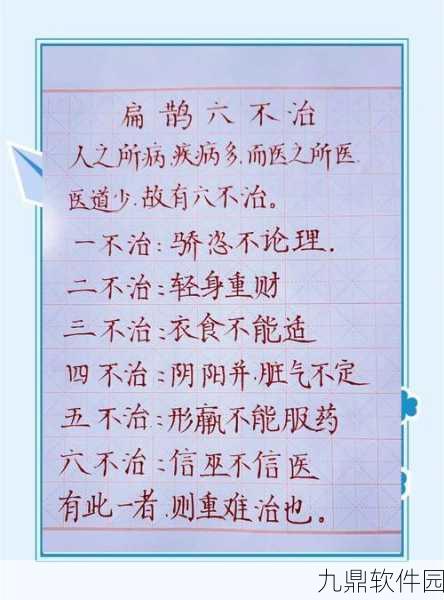 扁鹊六不治
人之所病,疾病多,而医之所医,
医道少,故有六不治。
一不治:骄恣不论理.
二不治:轻身重财
三不治:衣食不能适
四不治:阴阳并,脏气不定
五不治:形羸不能服药
六不治:信巫不信医
有此一者,则重难治也。
九鼎软件园